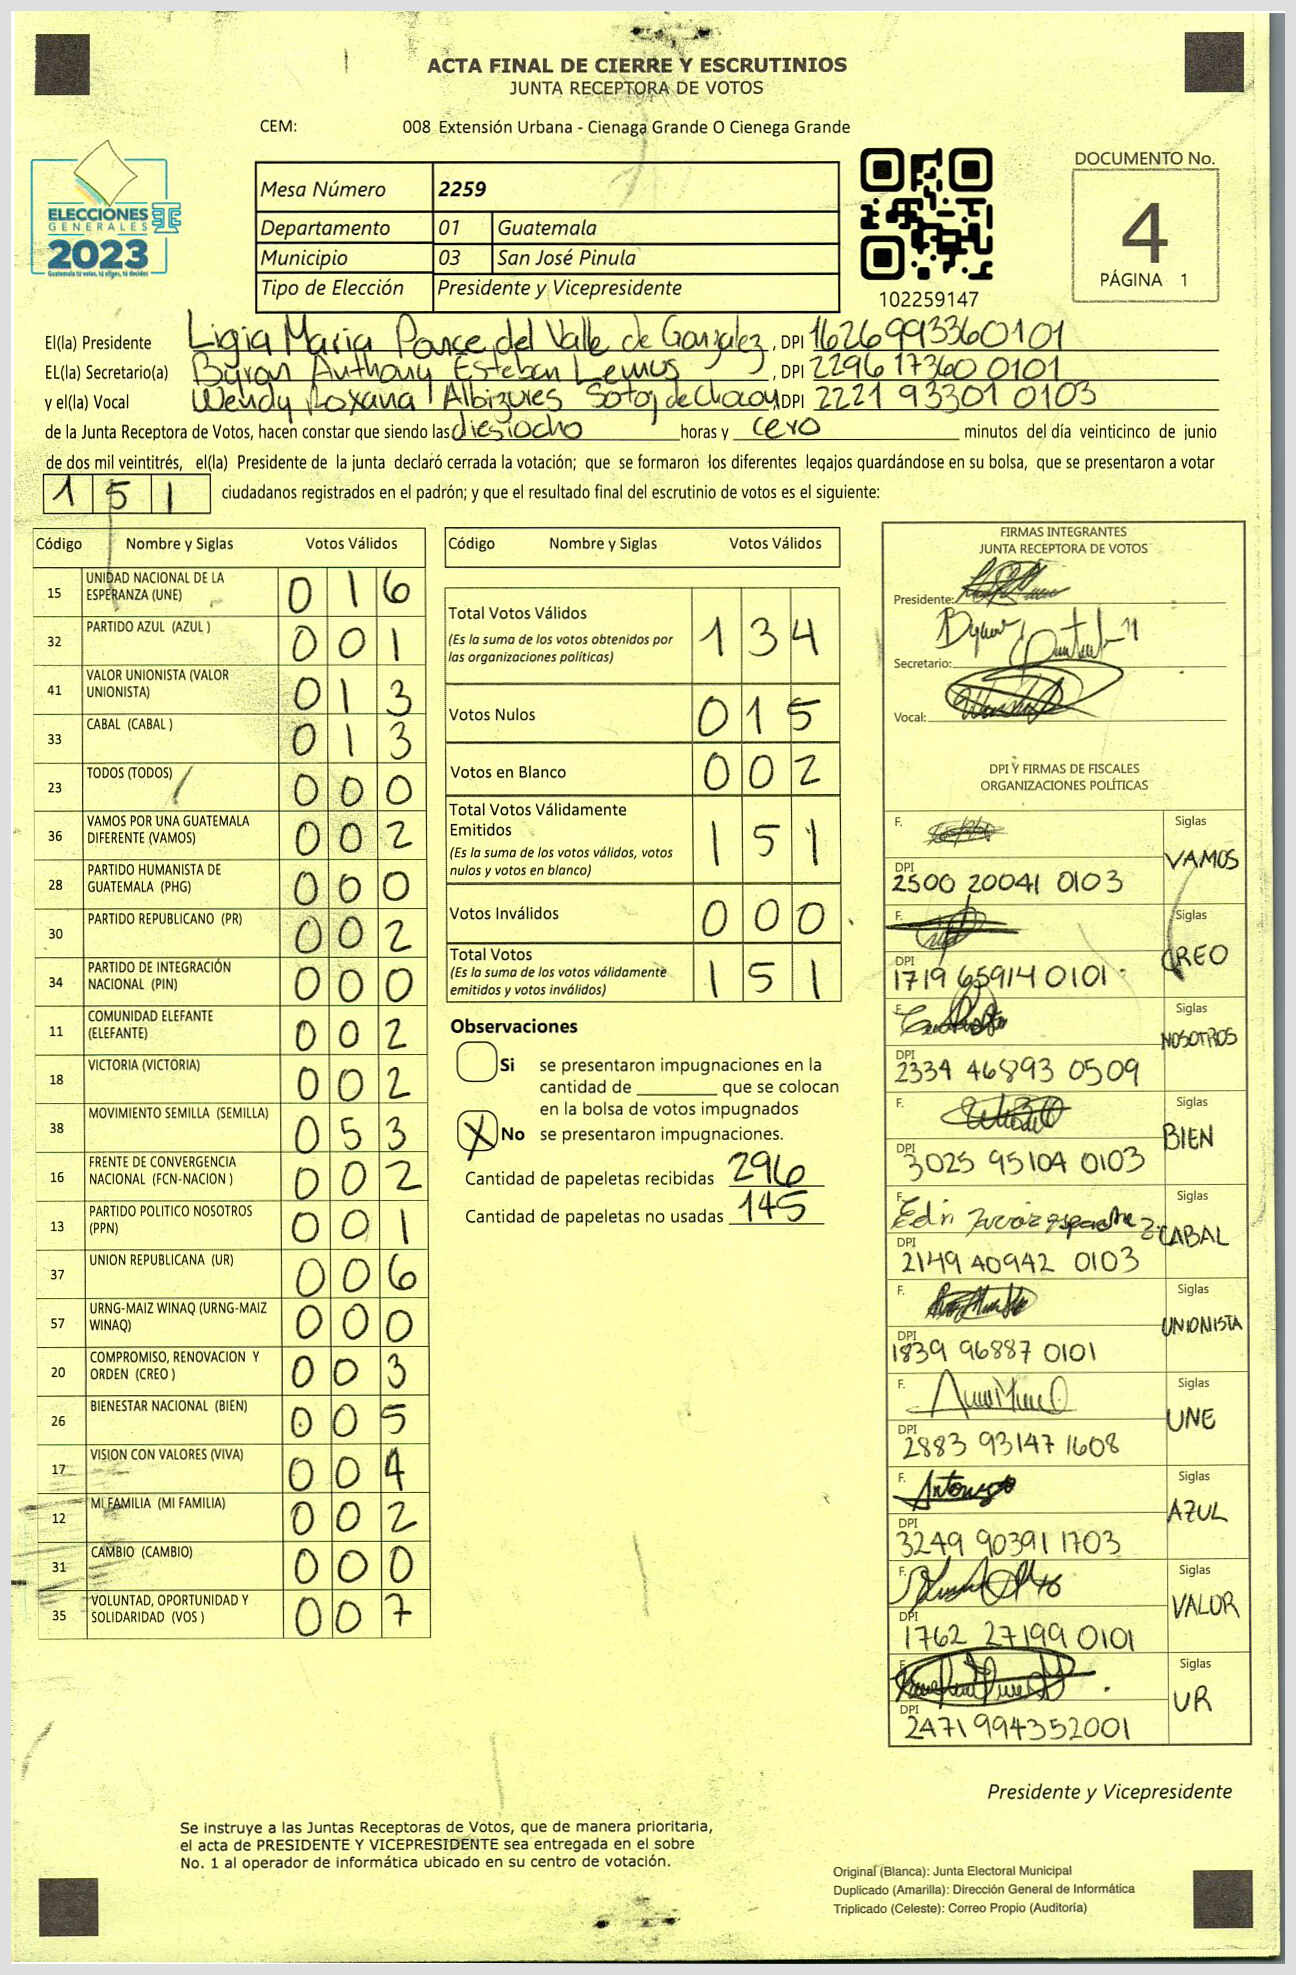 ACTA FINAL DE CIERRE Y ESCRUTINIOS
JUNTA RECEPTORA DE VOTOS
CEM: 008 Extensión Urbana - Cienaga Grande O Cienega Grande
ELECCIONES
GENERALES
2023
Guatemala tú votas, tú eliges, tú decides
Mesa Número 2259
Departamento 01 Guatemala
Municipio 03 San José Pinula
Tipo de Elección Presidente y Vicepresidente
102259147
DOCUMENTO No.
4
PÁGINA 1
El(la) Presidente Ligia Maria Ponce del Valle de Gonzalez, DPI 1626993360101
EL(la) Secretario(a) Byron Anthony Esteban Lemus, DPI 2296 17360 0101
y el(la) Vocal Wendy Roxana Albizures Sotoj de Chocoy, DPI 2221 93301 0103
de la Junta Receptora de Votos, hacen constar que siendo las diesiocho horas y cero minutos del día veinticinco de junio
de dos mil veintitrés, el(la) Presidente de la junta declaró cerrada la votación; que se formaron los diferentes legajos guardándose en su bolsa, que se presentaron a votar
151 ciudadanos registrados en el padrón; y que el resultado final del escrutinio de votos es el siguiente:
Código Nombre y Siglas Votos Válidos
15 UNIDAD NACIONAL DE LA ESPERANZA (UNE) 016
32 PARTIDO AZUL (AZUL ) 001
41 VALOR UNIONISTA (VALOR UNIONISTA) 013
33 CABAL (CABAL ) 013
23 TODOS (TODOS) 000
36 VAMOS POR UNA GUATEMALA DIFERENTE (VAMOS) 002
28 PARTIDO HUMANISTA DE GUATEMALA (PHG) 000
30 PARTIDO REPUBLICANO (PR) 002
34 PARTIDO DE INTEGRACIÓN NACIONAL (PIN) 000
11 COMUNIDAD ELEFANTE (ELEFANTE) 002
18 VICTORIA (VICTORIA) 002
38 MOVIMIENTO SEMILLA (SEMILLA) 053
16 FRENTE DE CONVERGENCIA NACIONAL (FCN-NACION ) 002
13 PARTIDO POLITICO NOSOTROS (PPN) 001
37 UNION REPUBLICANA (UR) 006
57 URNG-MAIZ WINAQ (URNG-MAIZ WINAQ) 000
20 COMPROMISO, RENOVACION Y ORDEN (CREO ) 003
26 BIENESTAR NACIONAL (BIEN) 005
17 VISION CON VALORES (VIVA) 004
12 MI FAMILIA (MI FAMILIA) 002
31 CAMBIO (CAMBIO) 000
35 VOLUNTAD, OPORTUNIDAD Y SOLIDARIDAD (VOS ) 007
Código Nombre y Siglas Votos Válidos
Total Votos Válidos 134
(Es la suma de los votos obtenidos por las organizaciones políticas)
Votos Nulos 015
Votos en Blanco 002
Total Votos Válidamente Emitidos 151
(Es la suma de los votos válidos, votos nulos y votos en blanco)
Votos Inválidos 000
Total Votos 151
(Es la suma de los votos válidamente emitidos y votos inválidos)
Observaciones
Si se presentaron impugnaciones en la
cantidad de ________ que se colocan
en la bolsa de votos impugnados
X No se presentaron impugnaciones.
Cantidad de papeletas recibidas 296
Cantidad de papeletas no usadas 145
FIRMAS INTEGRANTES
JUNTA RECEPTORA DE VOTOS
Presidente:
Secretario:
Vocal:
DPI Y FIRMAS DE FISCALES
ORGANIZACIONES POLÍTICAS
F. Siglas VAMOS
DPI 2500 20041 0103
F. Siglas CREO
DPI 1719 65914 0101
F. Siglas NOSOTROS
DPI 2334 46893 0509
F. Siglas BIEN
DPI 3025 95104 0103
F. Siglas CABAL
DPI 2149 40942 0103
F. Siglas UNIONISTA
DPI 1839 96887 0101
F. Siglas UNE
DPI 2883 93147 1608
F. Siglas AZUL
DPI 3249 90391 1703
F. Siglas VALOR
DPI 1762 27199 0101
F. Siglas UR
DPI 2471 994352001
Presidente y Vicepresidente
Se instruye a las Juntas Receptoras de Votos, que de manera prioritaria,
el acta de PRESIDENTE Y VICEPRESIDENTE sea entregada en el sobre
No. 1 al operador de informática ubicado en su centro de votación.
Original (Blanca): Junta Electoral Municipal
Duplicado (Amarilla): Dirección General de Informática
Triplicado (Celeste): Correo Propio (Auditoría)